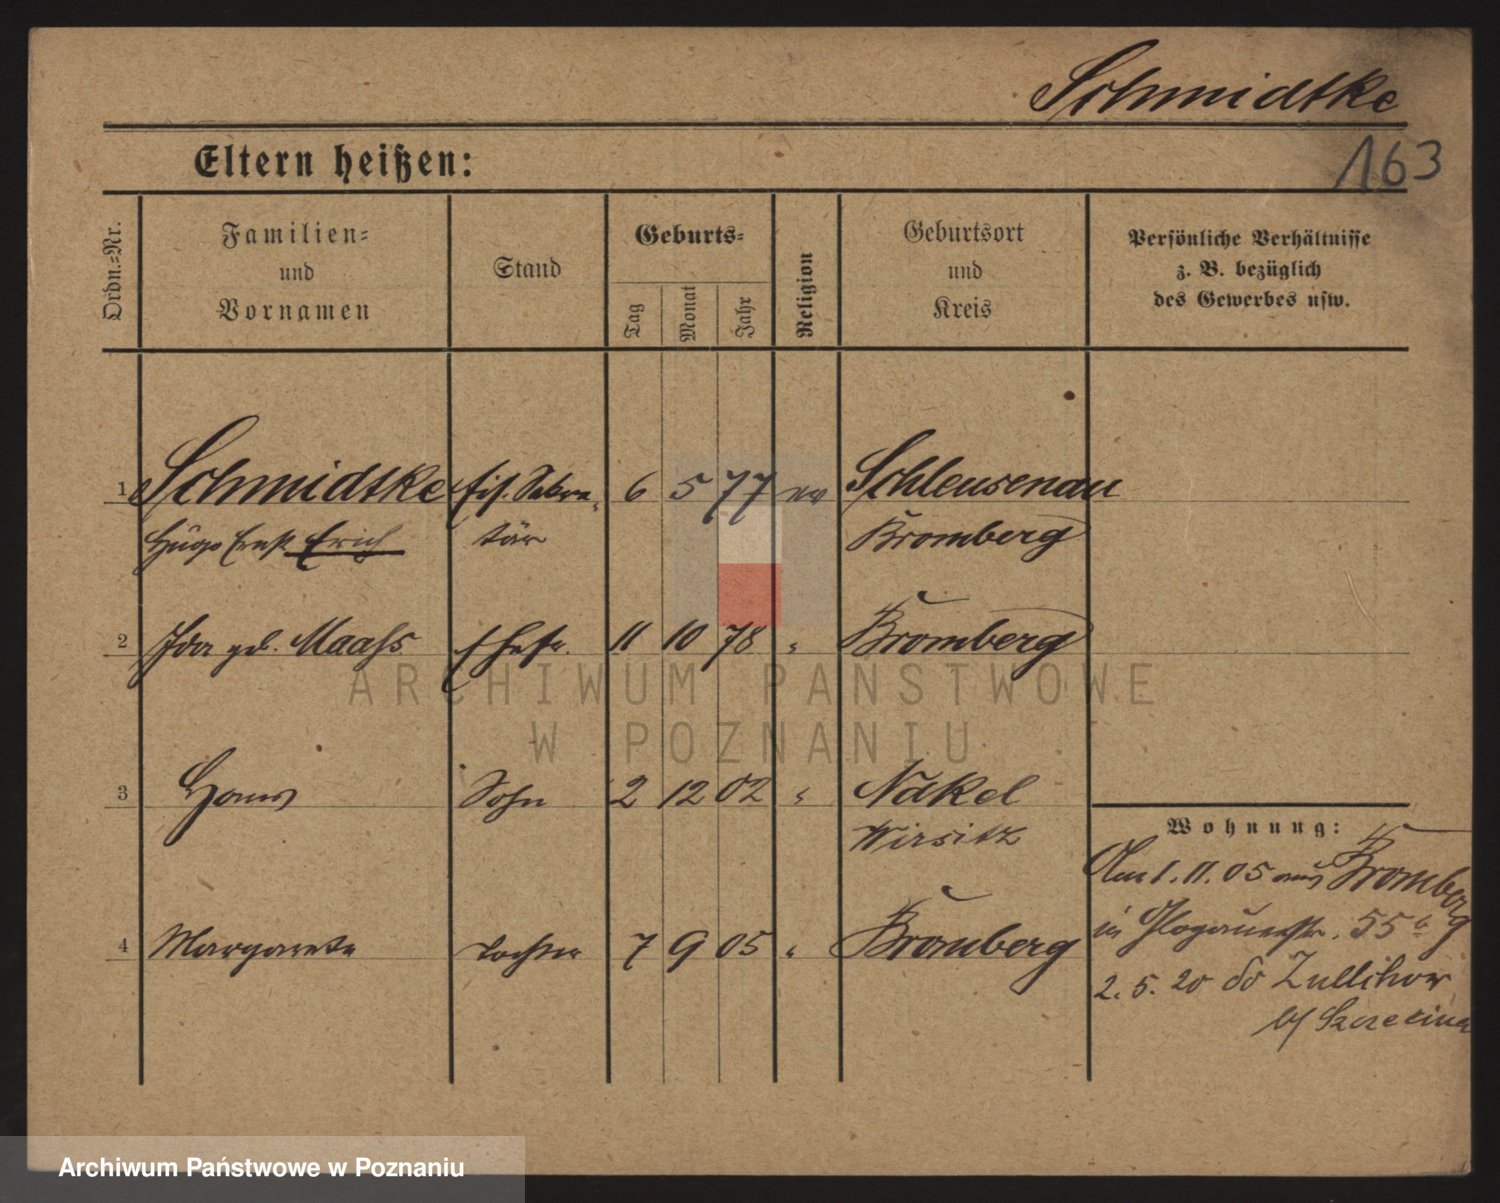 Schmidtke
163
Eltern heißen:
Ordn.-Nr.
Familien- und Vornamen
Stand
Geburts-
Tag
Monat
Jahr
Religion
Geburtsort und Kreis
Persönliche Verhältnisse z. B. bezüglich des Gewerbes usw.
1 Schmidtke Eis. Sekre- 6 5 77 ev Schleusenau
Hugo Ernst Erich tär Bromberg
2 Ida geb. Maass Ehefr. 11 10 78 " Bromberg
3 Hans Sohn 2 12 02 " Nakel
Wirsitz
4 Margarete Tochter 7 9 05 " Bromberg
Wohnung:
Am 1. 11. 05 aus Bromberg
in Glogauerstr. 55
2. 5. 20 do Züllchow
b/ Szczecina
ARCHIWUM PAŃSTWOWE
W POZNANIU
Archiwum Państwowe w Poznaniu